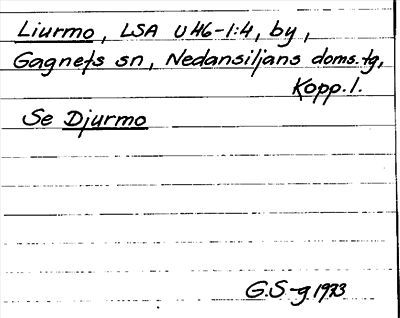 Liurmo, LSA U 46-1:4, by,
Gagnefs sn, Nedansiljans doms.tg,
Kopp.l.
Se Djurmo
G.S-g 1973